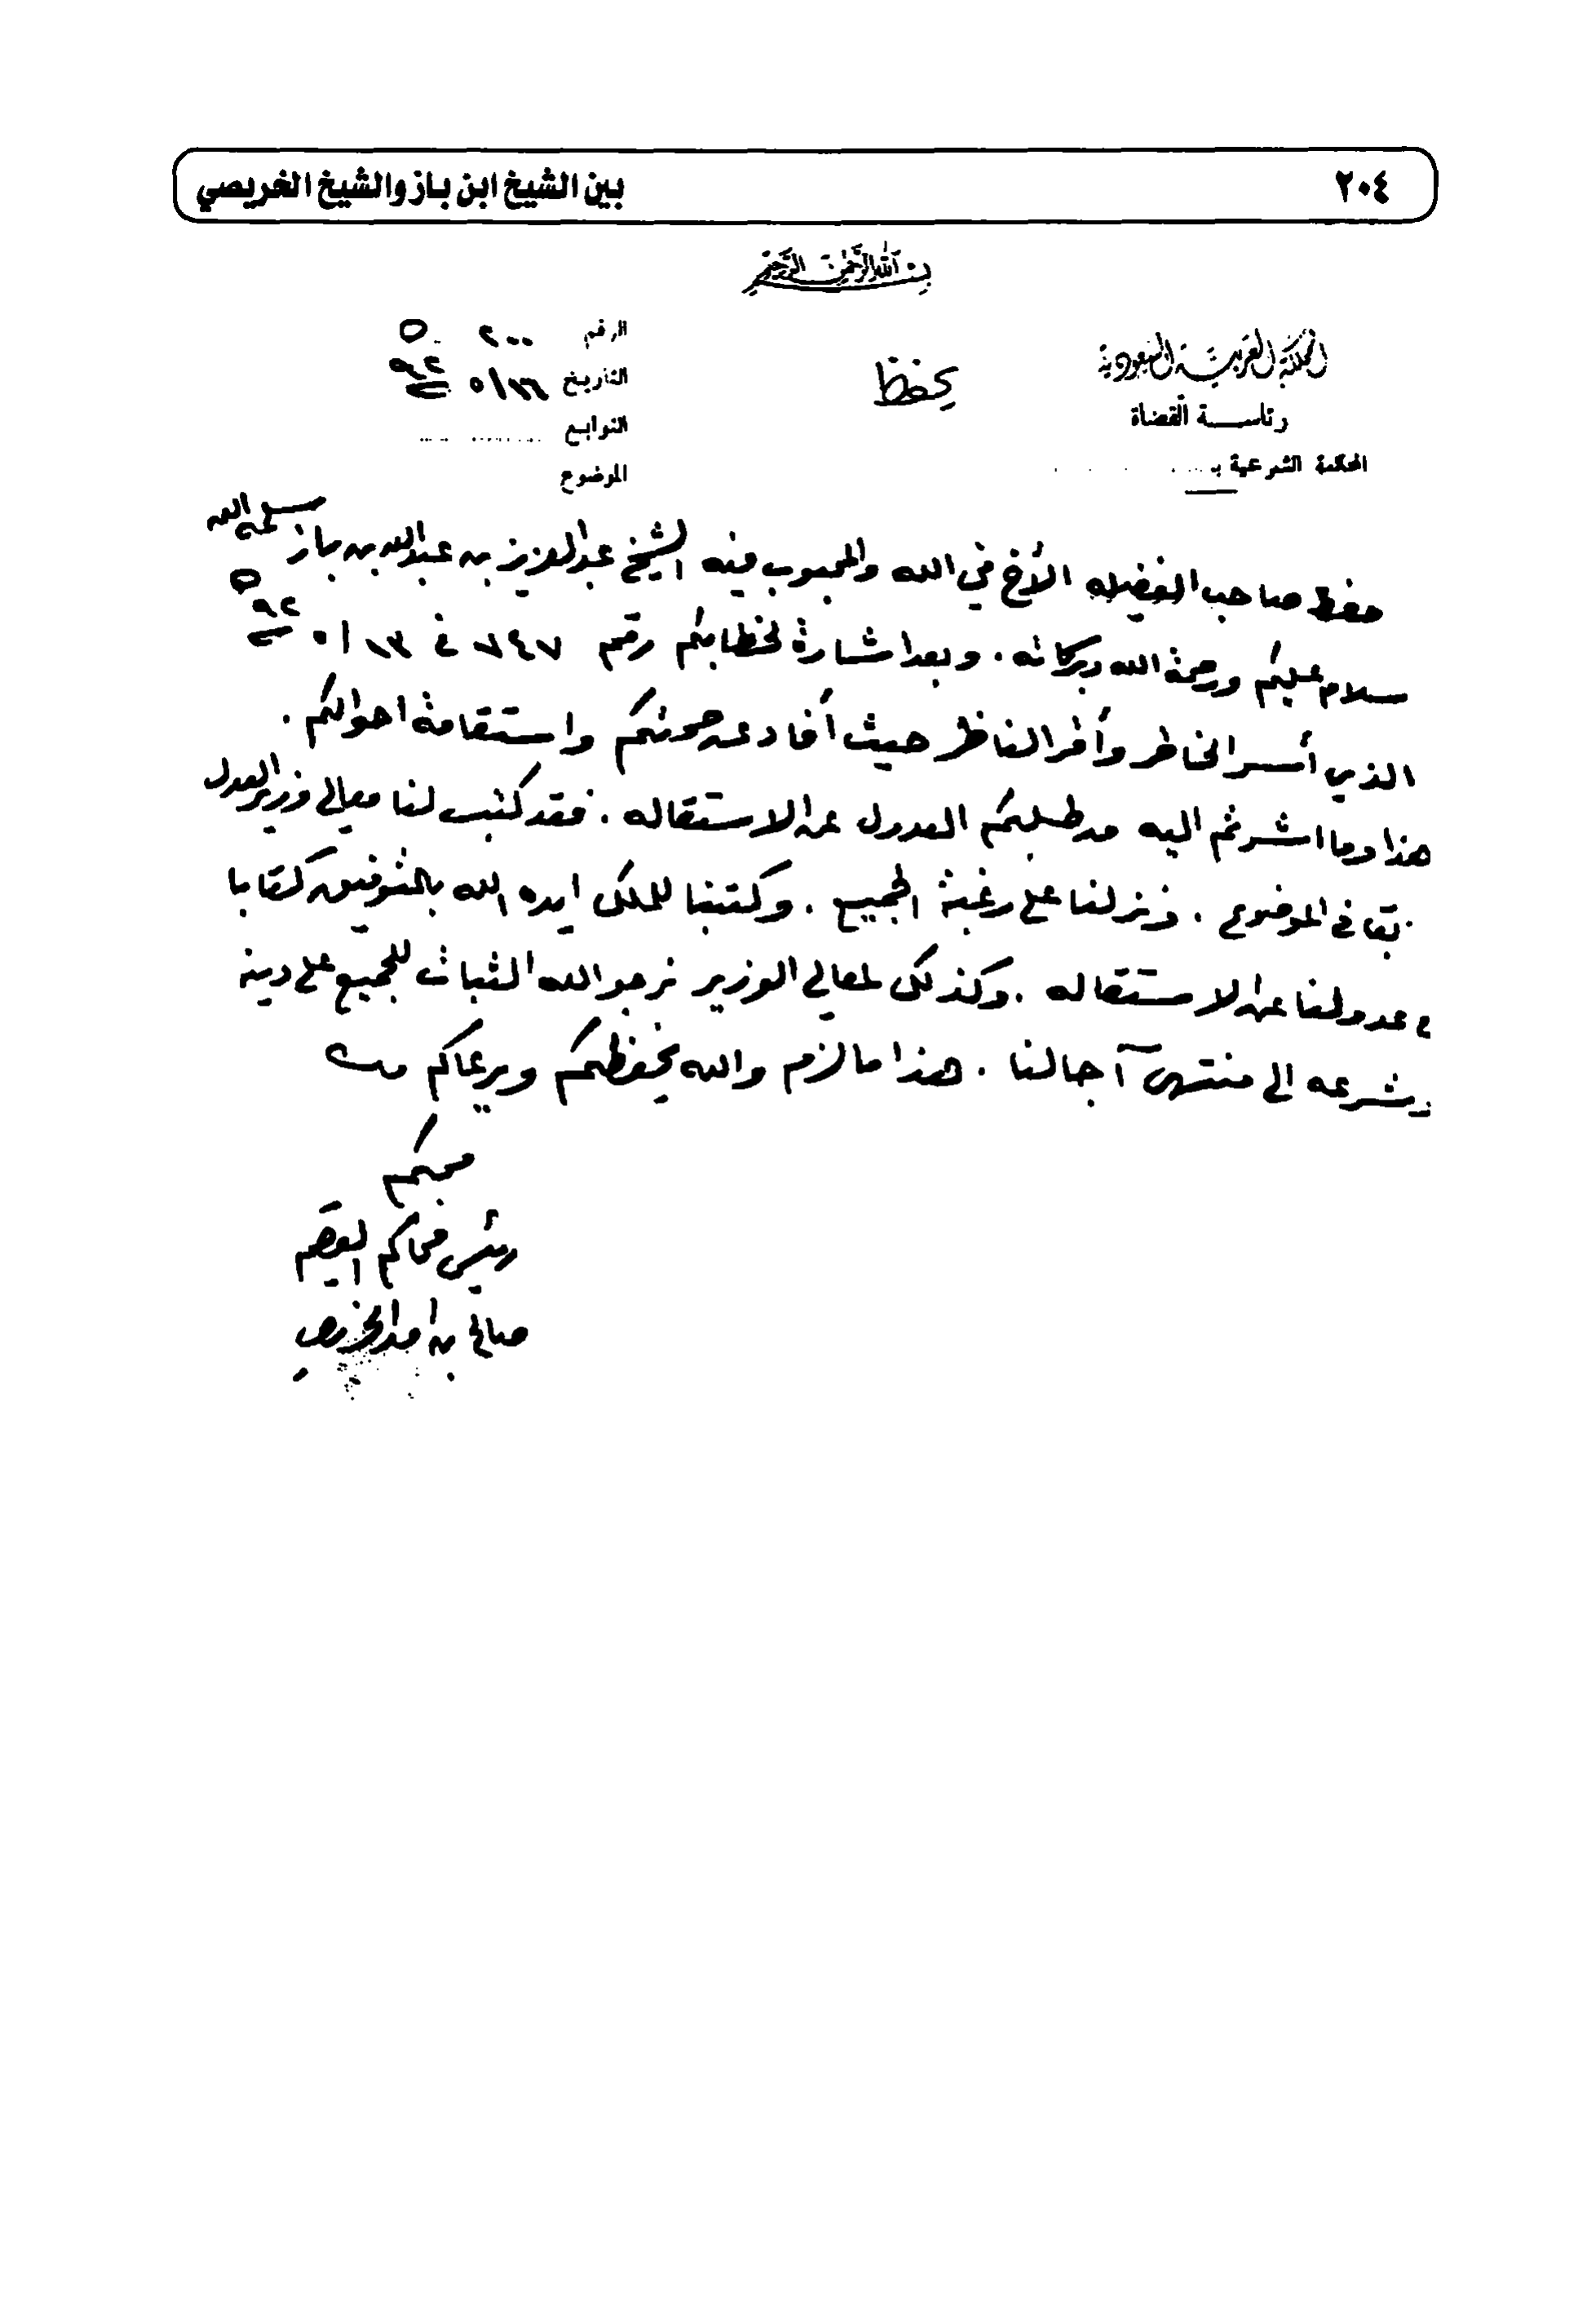 ٢٠٤
بين الشيخ ابن باز والشيخ الخريصي
بسم الله الرحمن الرحيم
المملكة العربية السعودية
رئاسة القضاة
المحكمة الشرعية بـ
يحفظ
الرقم ٢٠٠ ٥
التاريخ ١٦/٥ ٩٢
التوابع
الموضوع
حفظ صاحب الفضيله الأخ في الله والمحبوب فيه الشيخ عبدالعزيز بن عبدالله بن باز سلمه الله
سلام عليكم ورحمة الله وبركاته . وبعد اشارة لخطابكم رقم ٧٤٧ في ١٣/٥ ٩٢
الذي أسر الخاطر وأقر الناظر حيث أفاد عن صحتكم واستقامة احوالكم .
هذا وما اشرتم اليه من طلبكم العدول عن الاستقاله . فقد كتب لنا معالي وزير العدل
في الموضوع . ونزلنا على رغبة الجميع . وكتبنا للملك ايده الله بالتوفيق كتابا
عدولنا عن الاستقاله . وكذلك لمعالي الوزير نرجو الله الثبات للجميع على دينه
وشرعه الى منتهى آجالنا . هذا ما لزم والله يحفظكم ويرعاكم
محبكم
رئيس محاكم القصيم
صالح بن احمد الخريصي